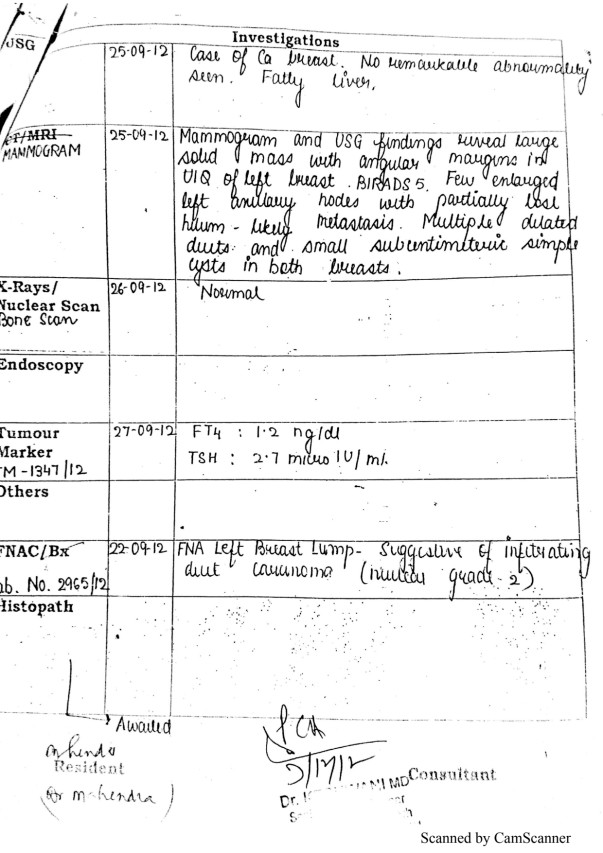 Investigations
USG
25-09-12 Case of Ca breast. No remarkable abnormality
seen. Fatty liver.
CT/MRI
MAMMOGRAM
25-09-12 Mammogram and USG findings reveal large
solid mass with angular margins in
UIQ of left breast. BIRADS 5. Few enlarged
left axillary nodes with partially lost
hilum - likely metastasis. Multiple dilated
ducts and small subcentimeteric simple
cysts in both breasts.
X-Rays/
Nuclear Scan
Bone Scan
26-09-12 Normal
Endoscopy
Tumour
Marker
TM-1347/12
27-09-12 FT4 : 1.2 ng/dl
TSH : 2.7 micro IU/ml.
Others
FNAC/Bx
22-09-12 FNA Left Breast Lump- Suggestive of infiltrating
duct carcinoma (nuclear grade-2)
No. 2965/12
Histopath
Awaited
Resident
(Dr Mahendra)
Consultant
MD
Dr.
Scanned by CamScanner